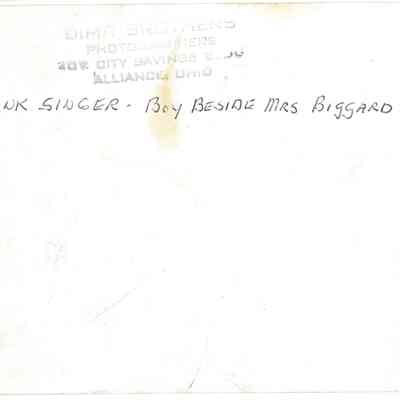 DIMA BROTHERS
PHOTOGRAPHERS
CITY SAVINGS BLDG
ALLIANCE, OHIO
NK SINGER - BOY BESIDE MRS BIGGARD